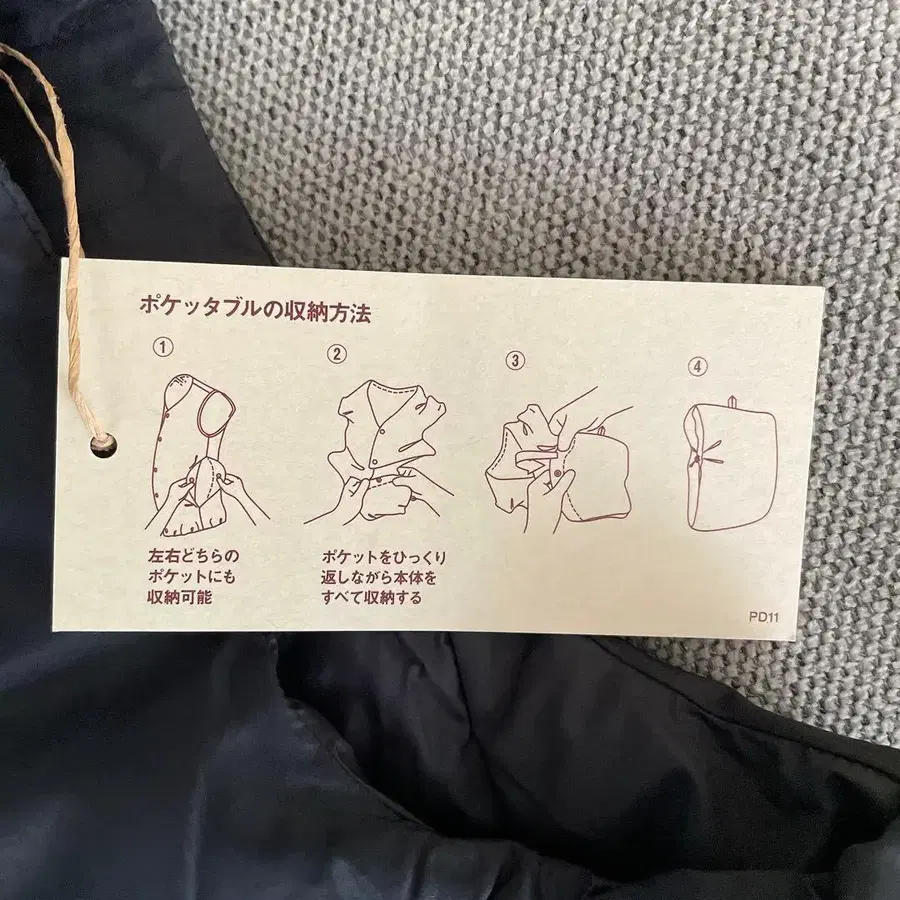 ポケッタブルの収納方法
① ② ③ ④
左右どちらの
ポケットにも
収納可能
ポケットをひっくり
返しながら本体を
すべて収納する
PD11